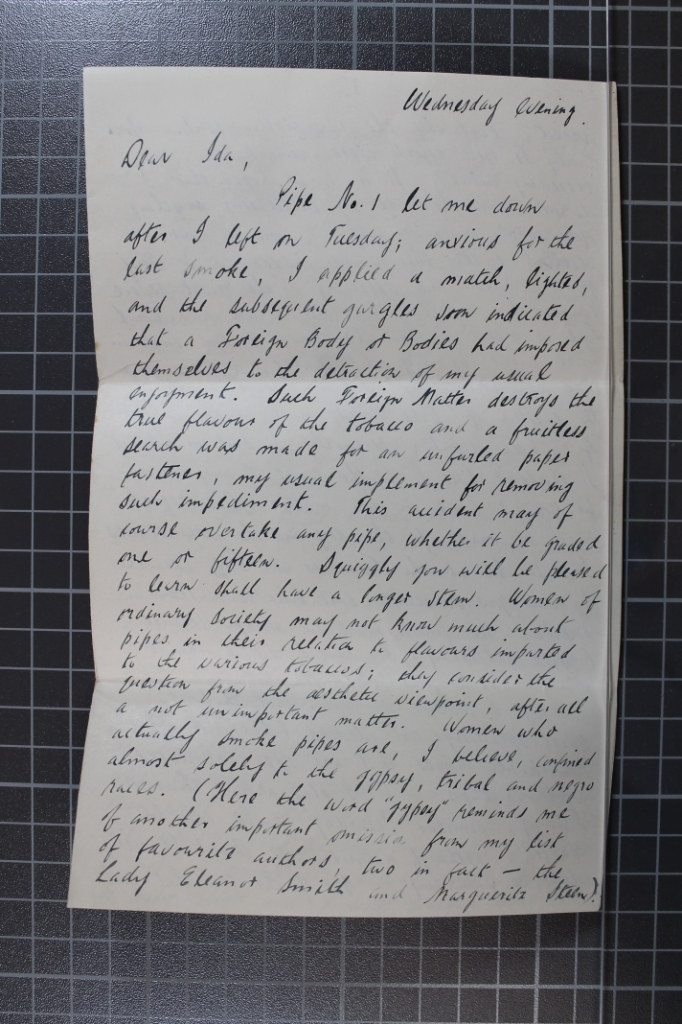 Wednesday evening.
Dear Ida,
Pipe No. 1 let me down
after I left on Tuesday; anxious for the
last smoke, I applied a match, lighted,
and the subsequent gurgles soon indicated
that a Foreign Body or Bodies had imposed
themselves to the detraction of my usual
enjoyment. Such Foreign Matter destroys the
true flavour of the tobacco and a fruitless
search was made for an unfurled paper
fastener, my usual implement for removing
such impediment. This accident may of
course overtake any pipe, whether it be graded
one or fifteen. Squiggly you will be pleased
to learn shall have a longer stem. Women of
ordinary society may not know much about
pipes in their relation to flavours imparted
to the various tobaccos; they consider the
question from the aesthetic viewpoint, after all
a not unimportant matter. Women who
actually smoke pipes are, I believe, confined
almost solely to the gypsy, tribal and negro
races. (Here the word "gypsy" reminds me
of another important omission from my list
of favourite authors, two in fact — the
Lady Eleanor Smith and Marguerite Steen).